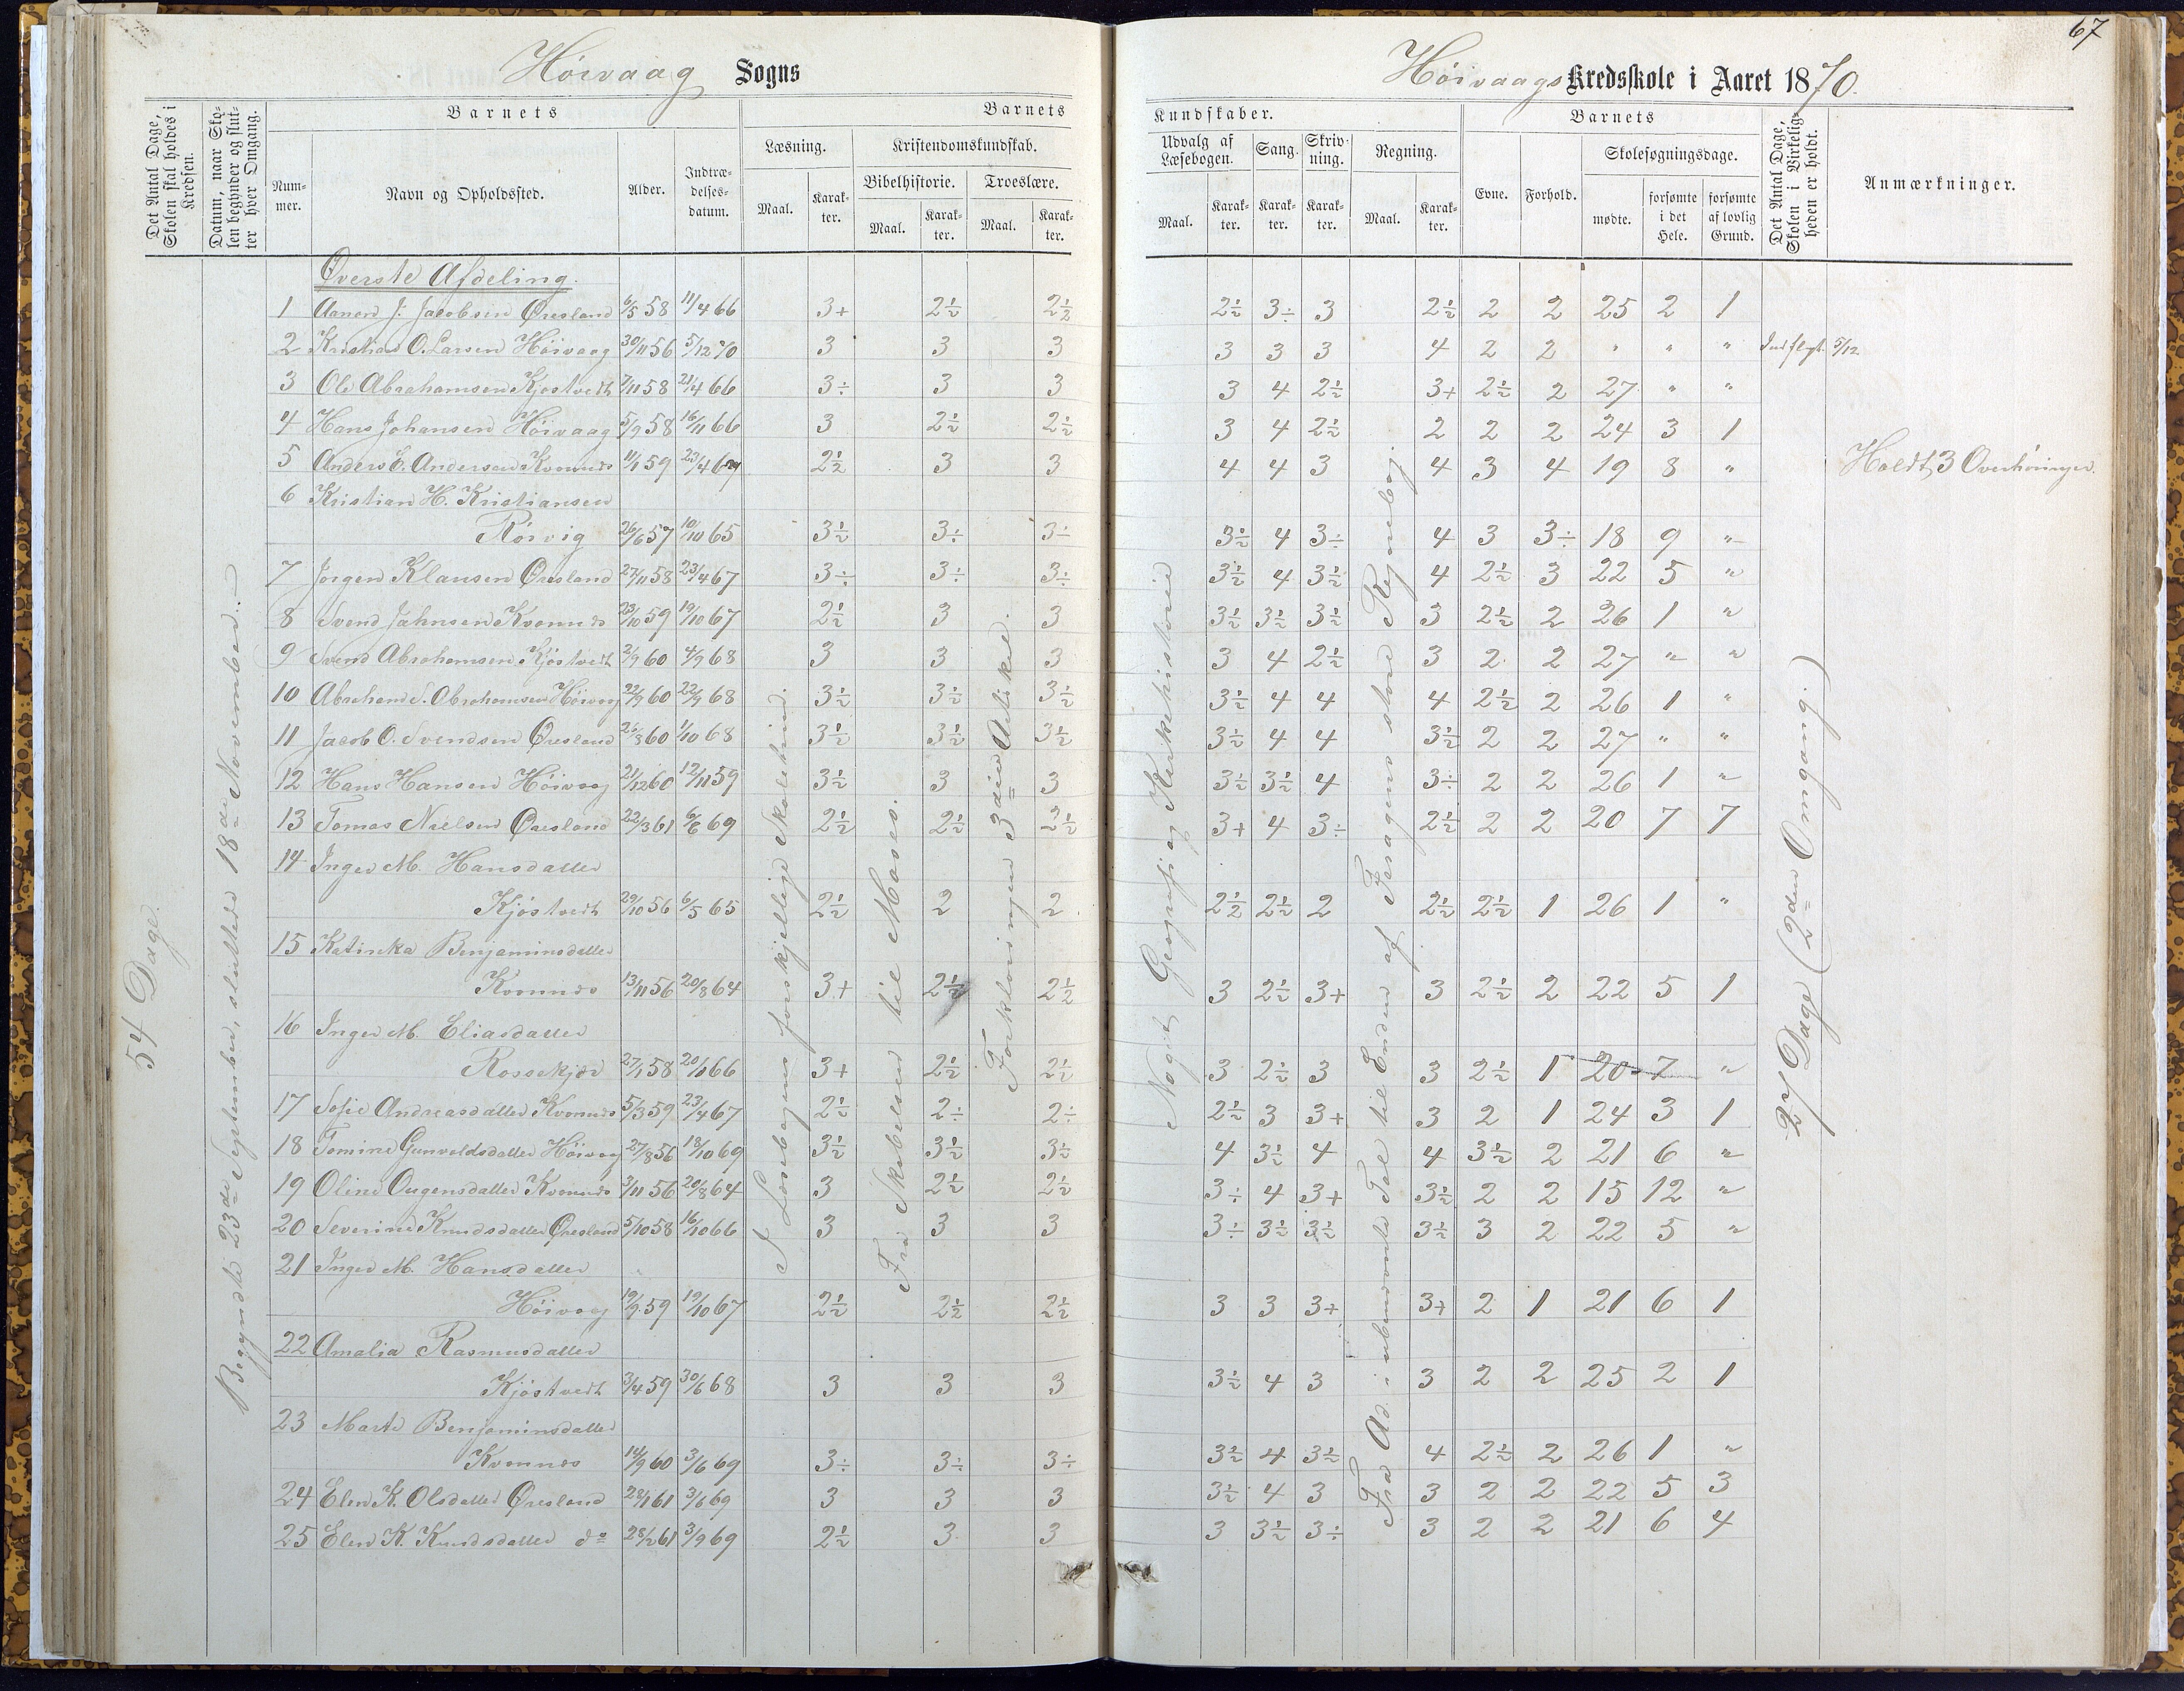 67
Høivaag Sogns
Høivaags Kredsskole i Aaret 1870.
Det Antal Dage, Skolen skal holdes i Kredsen.
Datum, naar Skolen begynder og slutter hver Omgang.
Barnets
Nummer.
Navn og Opholdssted.
Alder.
Indtrædelses-datum.
Barnets
Læsning.
Maal.
Karakter.
Kristendomskundskab.
Bibelhistorie.
Maal.
Karakter.
Troeslære.
Maal.
Karakter.
Kundskaber.
Udvalg af Læsebogen.
Maal.
Karakter.
Sang.
Karakter.
Skrivning.
Karakter.
Regning.
Maal.
Karakter.
Barnets
Evne.
Forhold.
Skolesøgningsdage.
mødte.
forsømte i det Hele.
forsømte af lovlig Grund.
Det Antal Dage, Skolen i Virkeligheden er holdt.
Anmærkninger.
54 Dage.
Begyndte 23de September, sluttede 18de November.
I Læsebogens forskjellige Skoletrin.
Fra Skabelsen til Moses.
Forklaringen 3die Artikel.
Noget Geografi og Kirkehistorie
Fra Ad. i ubenævnte Tal til Enden af Fragens store Regnebog.
27 Dage (2den Omgang.)
Øverste Afdeling.
1 Aanen J. Jacobsen Øresland 6/5 58 11/4 66 3+ 2½ 2½ 2½ 3÷ 3 2½ 2 2 25 2 1
2 Kristian O. Larsen Høivaag 30/11 56 5/12 70 3 3 3 3 3 3 4 2 2 " " " Indflyt. 5/12
3 Ole Abrahamsen Kjøstvedt 7/11 58 21/4 66 3÷ 3 3 3 4 2½ 3+ 2½ 2 27 " "
4 Hans Johansen Høivaag 5/9 58 16/11 66 3 2½ 2½ 3 4 2½ 2 2 2 24 3 1
5 Anders E. Andersen Kvannes 11/1 59 23/4 67 2½ 3 3 4 4 3 4 3 4 19 8 " Holdt 3 Overhøringer.
6 Kristian H. Kristiansen
Rørvig 26/6 57 10/10 65 3½ 3÷ 3÷ 3½ 4 3÷ 4 3 3÷ 18 9 "
7 Jørgen Klausen Øresland 27/11 58 23/4 67 3÷ 3÷ 3÷ 3½ 4 3½ 4 2½ 3 22 5 "
8 Svend Jahnsen Kvannes 23/10 59 19/10 67 2½ 3 3 3½ 3½ 3½ 3 2½ 2 26 1 "
9 Svend Abrahamsen Kjøstvedt 2/9 60 4/9 68 3 3 3 3 4 2½ 3 2 2 27 " "
10 Abraham S. Abrahamsen Høivaag 22/9 60 22/9 68 3½ 3½ 3½ 3½ 4 4 4 2½ 2 26 1 "
11 Jacob O. Svendsen Øresland 25/8 60 1/10 68 3½ 3½ 3½ 3½ 4 4 3½ 2 2 27 " "
12 Hans Hansen Høivaag 21/12 60 12/11 59 3½ 3 3 3½ 3½ 4 3÷ 2 2 26 1 "
13 Tomas Nielsen Øresland 22/3 61 6/6 69 2½ 2½ 2½ 3+ 4 3÷ 2½ 2 2 20 7 7
14 Inger M. Hansdatter
Kjøstvedt 29/10 56 6/5 65 2½ 2 2 2½ 2½ 2 2½ 2½ 1 26 1 "
15 Katinka Benjaminsdatter
Kvannes 13/11 56 20/8 64 3+ 2½ 2½ 3 2½ 3+ 3 2½ 2 22 5 1
16 Inger M. Eliasdatter
Rossekjær 27/1 58 20/1 66 3+ 2½ 2½ 3 2½ 3 3 2½ 1 20 7 "
17 Sofie Andreasdatter Kvannes 5/3 59 23/4 67 2½ 2÷ 2÷ 2½ 3 3+ 3 2 1 24 3 1
18 Tomine Gunvoldsdatter Høivaag 27/8 56 18/10 69 3½ 3½ 3½ 4 3½ 4 4 3½ 2 21 6 "
19 Oline Ougensdatter Kvannes 3/11 56 20/8 64 3 2½ 2½ 3÷ 4 3+ 3½ 2 2 15 12 "
20 Severine Knudsdatter Øresland 5/10 58 16/10 66 3 3 3 3÷ 3½ 3½ 3½ 3 2 22 5 "
21 Inger M. Hansdatter
Høivaag 19/9 59 19/10 67 2½ 2½ 2½ 3 3 3+ 3+ 2 1 21 6 1
22 Amalia Rasmusdatter
Kjøstvedt 3/4 59 30/6 68 3 3 3 3½ 4 3 3 2 2 25 2 1
23 Marte Benjaminsdatter
Kvannes 14/9 60 3/6 69 3÷ 3÷ 3÷ 3½ 4 3½ 4 2½ 2 26 1 "
24 Elen K. Olsdatter Øresland 28/1 61 3/6 69 3 3 3 3½ 4 3 3 2 2 22 5 3
25 Elen K. Knudsdatter do 28/2 61 3/9 69 2½ 3 3 3 3½ 3÷ 3 2 2 21 6 4